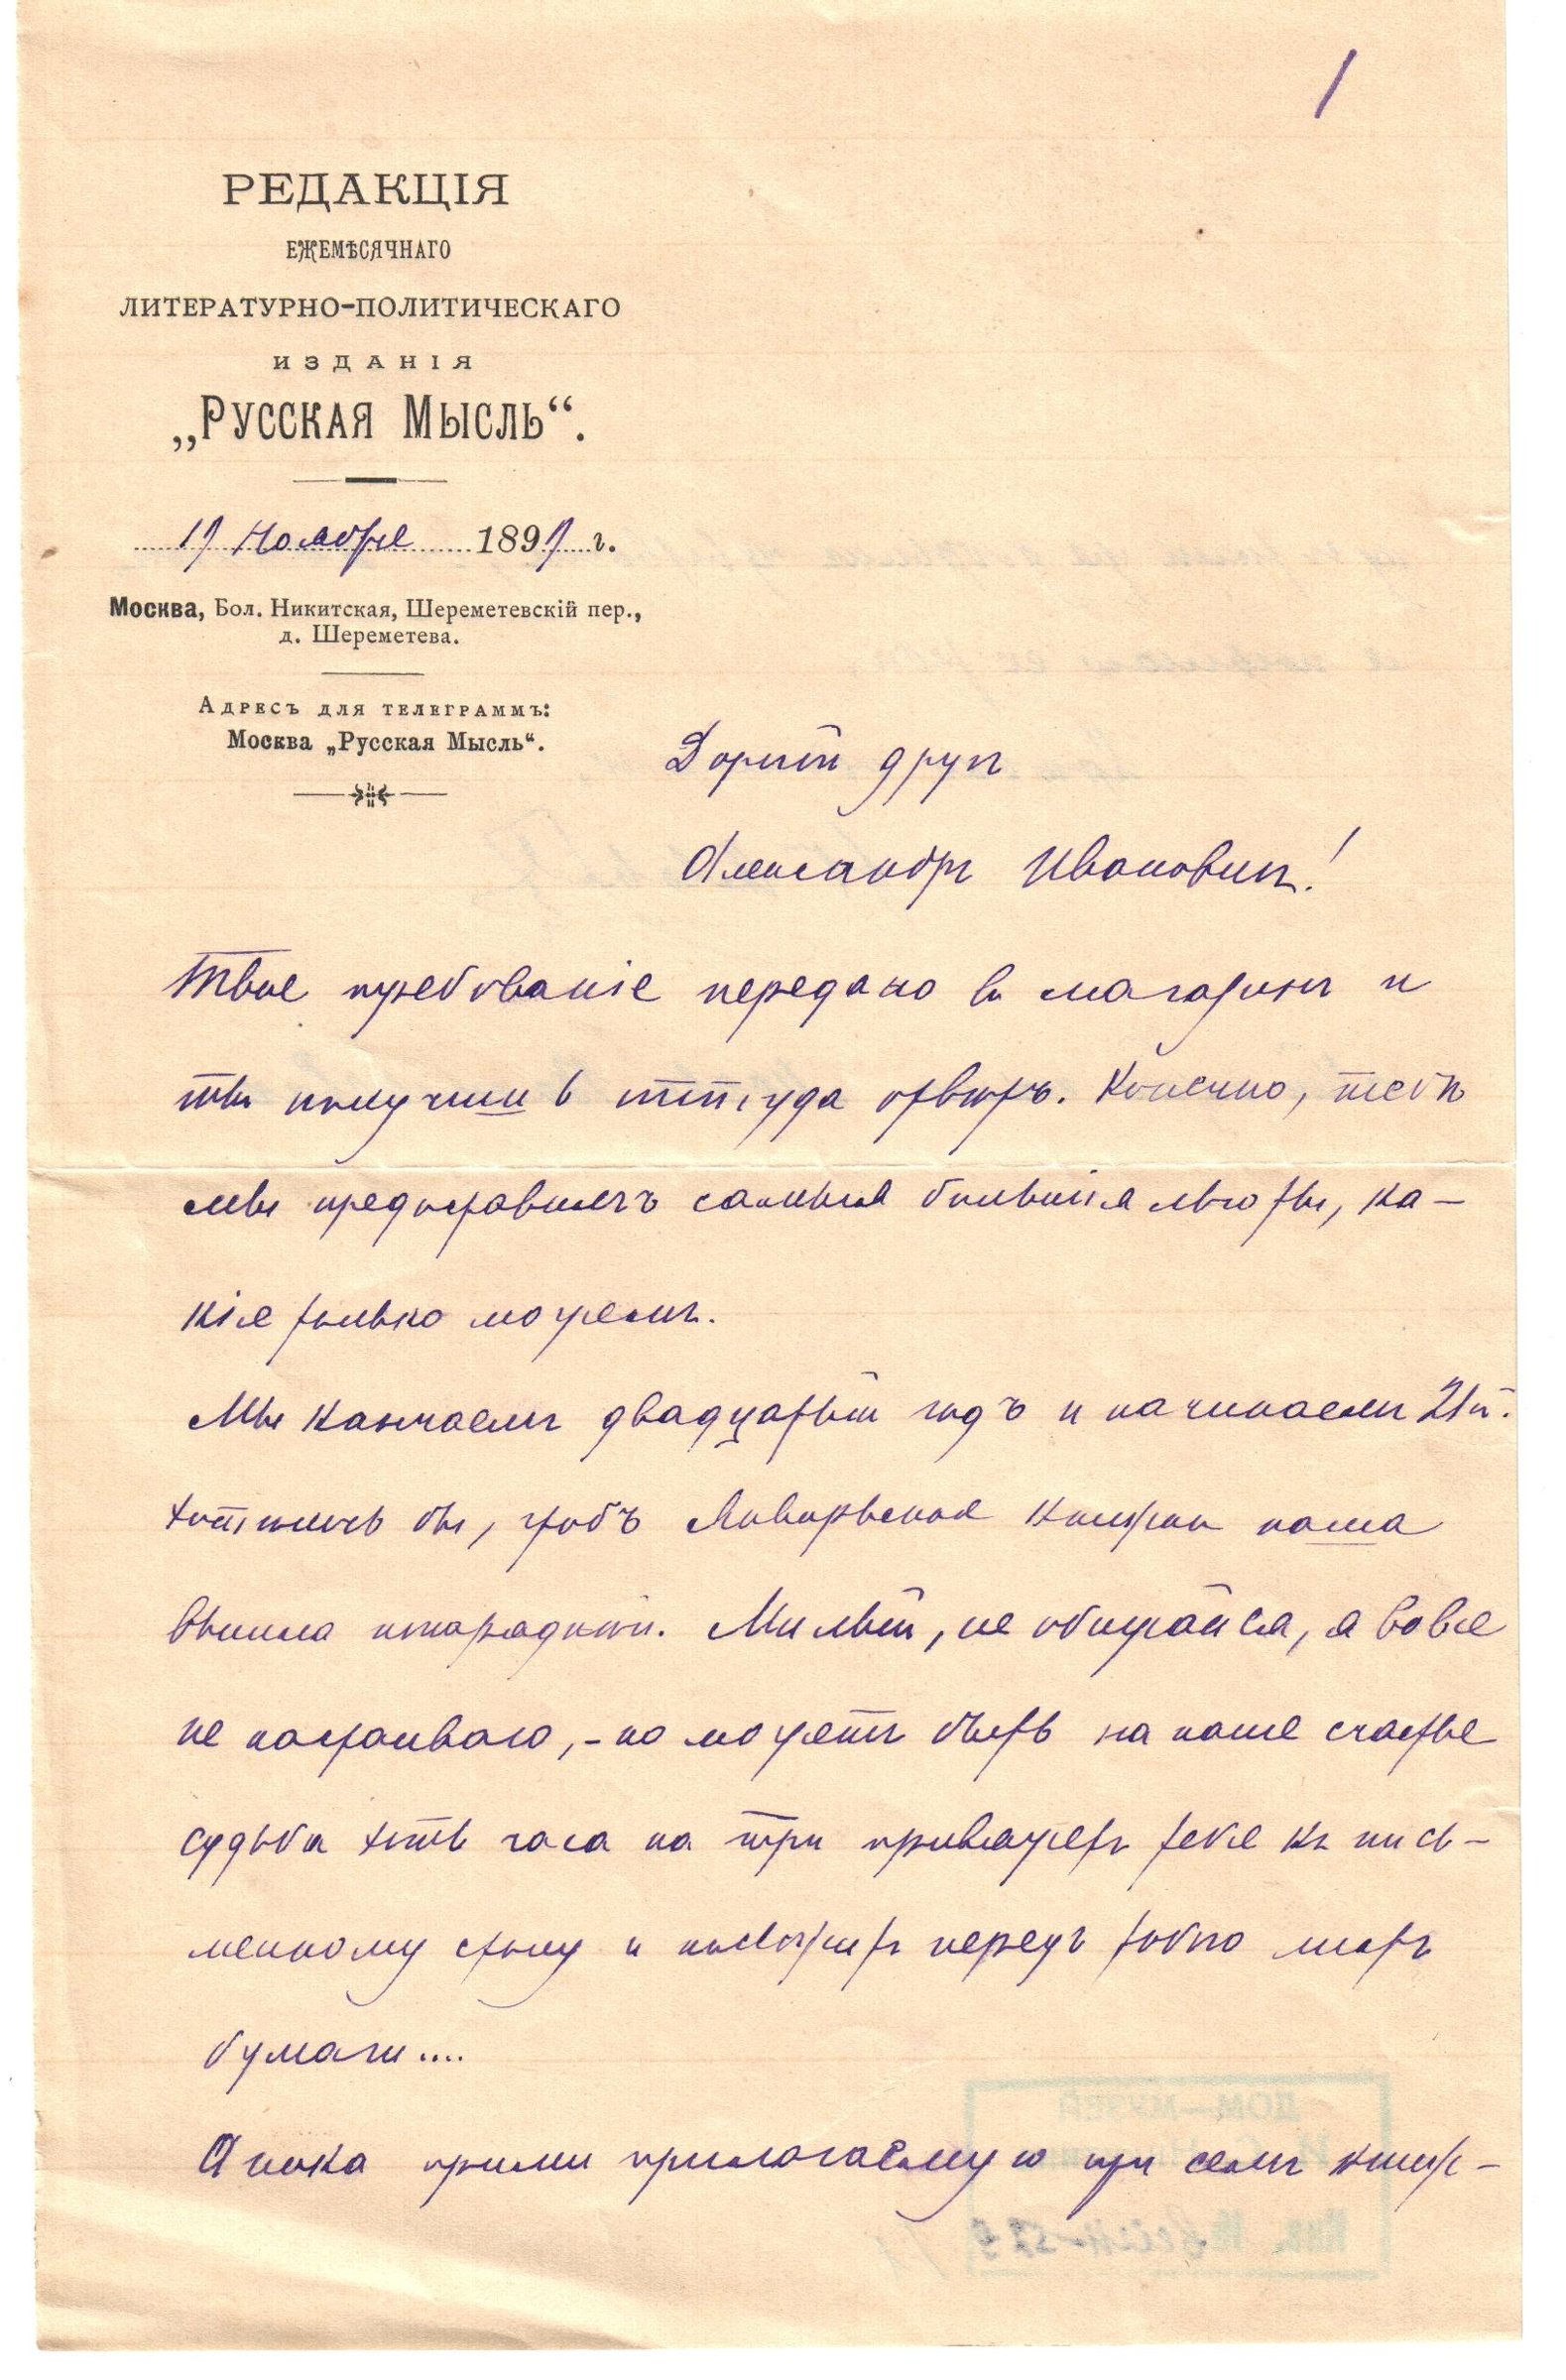 /
РЕДАКЦІЯ
ЕЖЕМѢСЯЧНАГО
ЛИТЕРАТУРНО-ПОЛИТИЧЕСКАГО
ИЗДАНІЯ
„РУССКАЯ МЫСЛЬ“.
Ноября 189 г.
Москва, Бол. Никитская, Шереметевскій пер.,
д. Шереметева.
Адресъ для телеграммъ:
Москва „Русская Мысль“.
Дорогой другъ
Александръ Ивановичъ!
Твое требованіе передано въ магазинъ и
ты получишь оттуда отвѣтъ. Конечно, тебѣ
мы предоставимъ самыя большія льготы, ка-
кія только можемъ.
Мы кончаемъ двадцатый годъ и начинаемъ 21й.
Хотѣлось бы, чтобъ Январьская книжка наша
вышла нарядной. Милый, не обижайся, я вовсе
не настаиваю, - но можетъ быть на наше счастье
судьба хоть часа на три привяжетъ тебя къ пись-
менному столу и положитъ передъ тобою листъ
бумаги....
А пока прими прилагаемую при семъ книж-
ДОМ-МУЗЕЙ
Инв. №